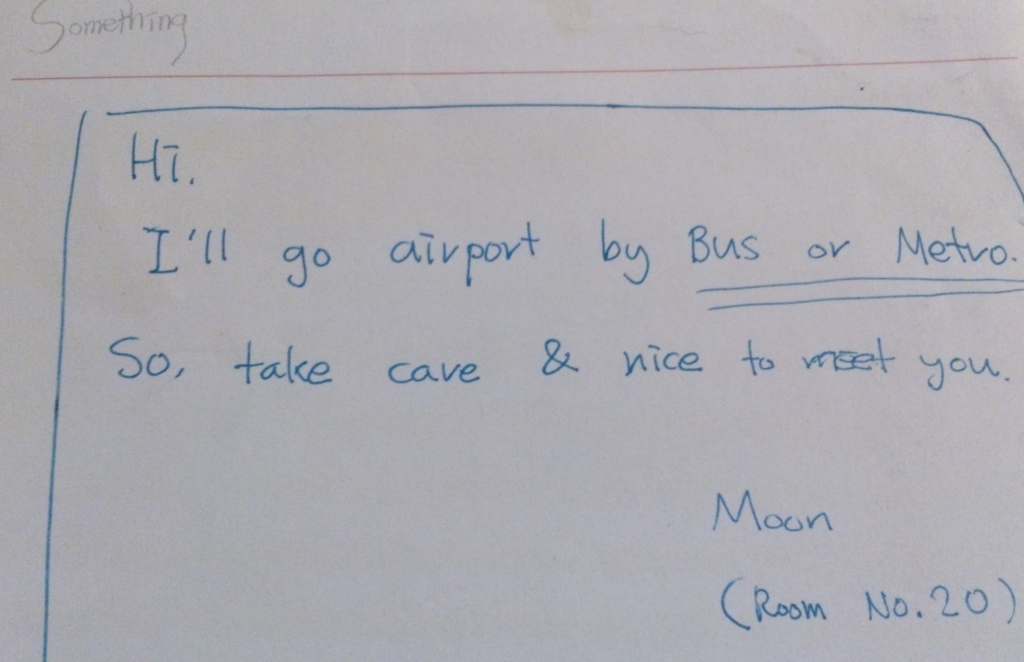 Something
Hi.
I'll go airport by Bus or Metro.
So, take care & nice to meet you.
Moon
(Room No. 20)